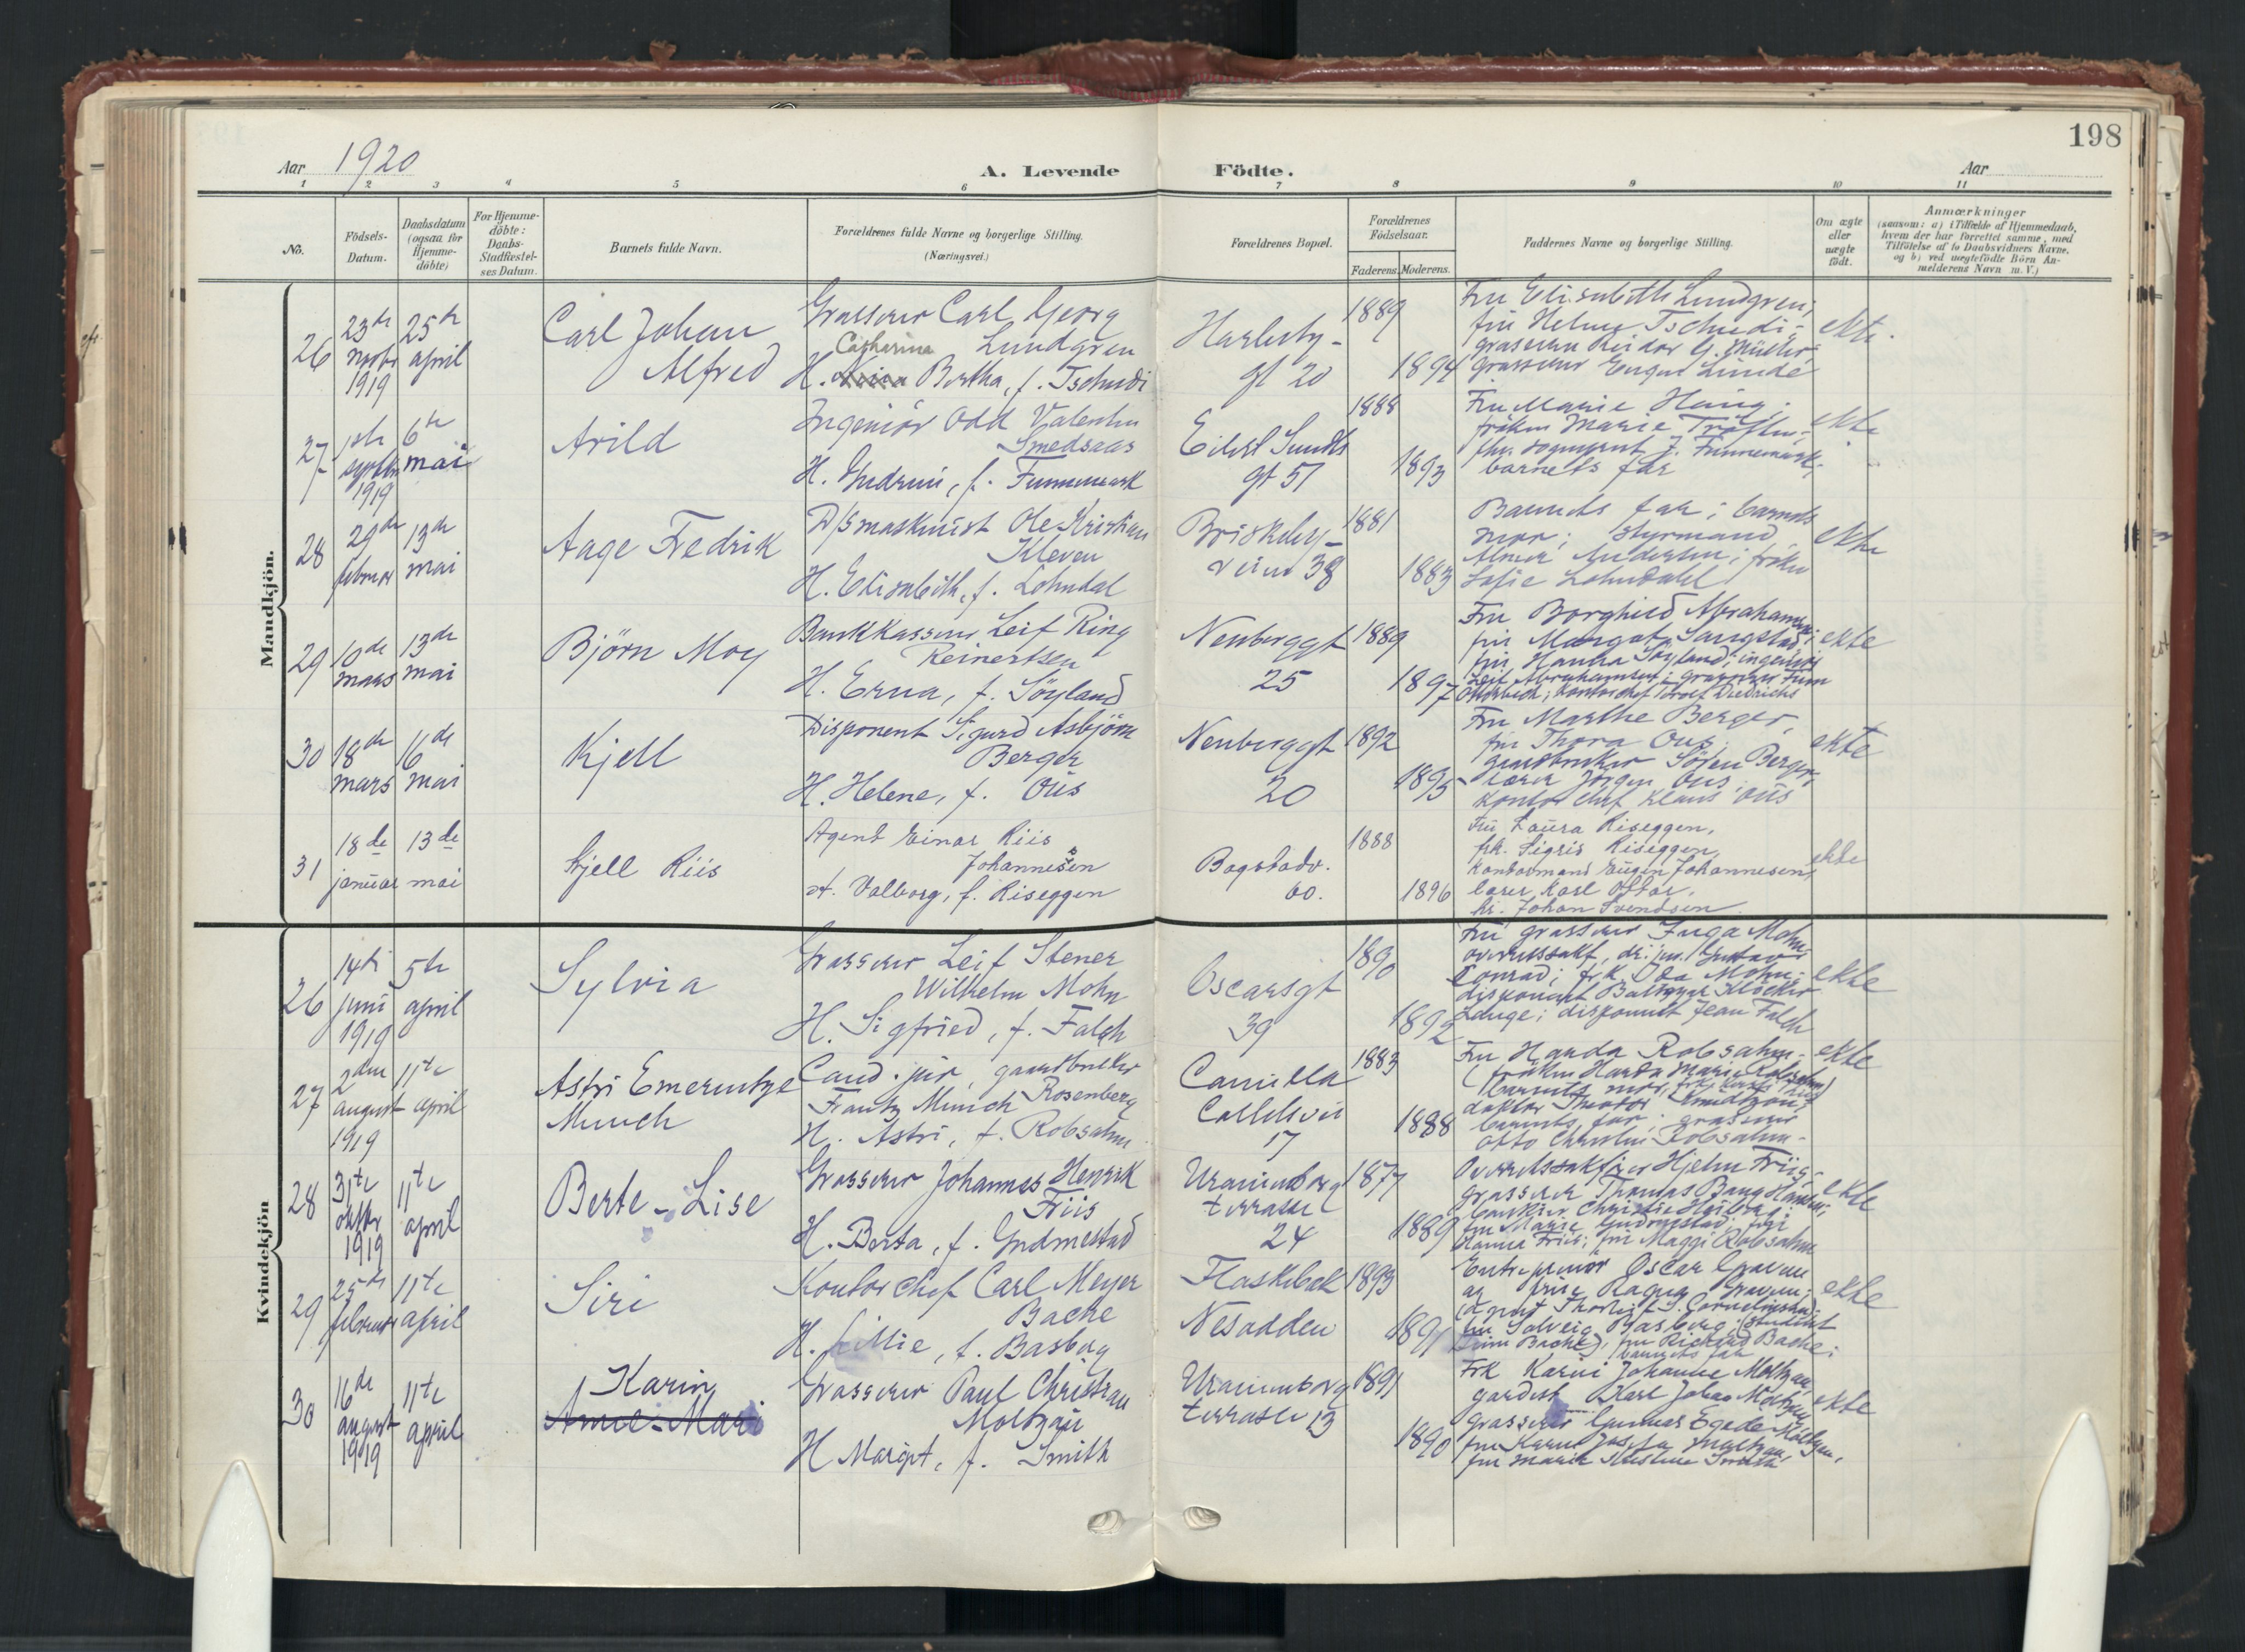 198
Aar 1920
A. Levende Födte.
Aar
1 2 3 4 5 6 7 8 9 10 11
No.
Födsels-
Datum.
Daabsdatum
(ogsaa for
Hjemme-
döbte)
For Hjemme-
döbte:
Daabs-
Stadfæstel-
ses Datum.
Barnets fulde Navn.
Forældrenes fulde Navne og borgerlige Stilling.
(Næringsvei.)
Forældrenes Bopæl.
Forældrenes
Födselsaar.
Faderens. Moderens.
Faddernes Navne og borgerlige Stilling.
Om ægte
eller
uægte
födt.
Anmærkninger
(saasom: a) i Tilfælde af Hjemmedaab,
hvem der har forrettet samme, med
Tilföielse af to Daabsvidners Navne,
og b) ved uægtefödte Börn An-
melderens Navn m. V.)
Mandkjön.
26
23de
novbr
1919
25de
april
Carl Johan
Alfred
Grosserer Carl Georg
Catharina Lundgren
H. Bertha, f. Tschudi
Harleby-
gt 20
1889
1894
Fru Elisabeth Lundgren;
fru Helene Tschudi;
grosserer Reidar G. Müller;
grosserer Eugen Lunde
ekte.
27
septbr
1919
6te
mai
Arild
Ingeniör Odd Valentin
Smedsaas
H. Gudrun, f. Funnemark
Eilert Sundts
gt 51
1888
1893
Fru Marie Haug;
fröken Marie
J. Funnemark;
barnets far
ekte
28
29de
februar
13de
mai
Aage Fredrik
D/S maskinist Ole Kristian
Kleven
H. Elisabeth, f. Lohndal
Briskeby-
veien 38
1881
1883
Barnets far; barnets
mor; styrmand
Andersen; fröken
Sofie Lohndahl
ekte
29
10de
mars
13de
mai
Björn Moy
Bankkasserer Leif Ring
Reinertsen
H. Erna, f. Söyland
Neuberggt
25
1889
1897
Fru Borghild Abrahamsen;
fru Margot Sangstad;
fru Hanna Söyland; ingeniör
Leif Abrahamsen; grosserer Finn
Otterbech; kontorchef Diedrichs
ekte
30
18de
mars
16de
mai
Kjell
Disponent Sigurd Asbjörn
Berger
H. Helene, f. Ous
Neuberggt
20
1892
1895
Fru Marthe Berger,
fru Thora Ous,
gaardbruker Sören Berger,
Jörgen Ous,
kontorchef Klaus Ous
ekte
31
18de
januar
13de
mai
Kjell Riis
Agent Einar Riis
Johannesen
H. Valborg, f. Riseggen
Bogstadv.
60.
1888
1896
Fru Laura Riseggen,
frk. Sigris Riseggen,
Kontormand Eugen Johannesen,
Karl Oftar,
hr. Johan Svendsen.
ekte
Kvindekjön
26
14de
juni
1919
5te
april
Sylvia
Grosserer Leif Stener
Wilhelm Mohn
H. Sigfried, f. Falch
Oscarsgt
39
1890
1892
Fru grosserer Inga Mohn;
overretssakf, dr. jur. Gustav
Conradi; frk. Oda Mohn;
disponent Klöcker
Lange; disponent Jean Falch
ekte
27
2den
august
1919
11te
april
Astri Emerentze
Munch
Cand. jur, gaardbruker
Frantz Munch Rosenberg
H. Astri, f. Robsahm
Camilla
Colletsvei
17
1883
1888
Fru Handa Robsahm;
(fröken Harda Marie Robsahm)
barnets mor;
doktor
barnets far; grosserer
Otto Christian Robsahm
ekte
28
31te
oktbr
1919
11te
april
Berte-Lise
Grosserer Johannes Henrik
Friis
H. Berta, f. Gudmestad
Uranienborg
terrasse
24
1877
1889
Overretssakförer Hjelm Friis;
grosserer Thomas Bang Hansen;
bankier Christie
fru Marie Gudmestad; fru
Hanna Friis; fru Maggi Robsahm
ekte
29
25de
februar
11te
april
Siri
Kontorchef Carl Meyer
Bache
H. Lillie, f. Basberg
Flaskebek
Nesodden
1893
1891
Entreprenör Oscar Graven
og frue Ragna Graven;
fru Solveig Basberg; (student
Bache), fru Rickard Bache;
barnets far
ekte
30
16de
august
1919
11te
april
Karin
Anne-Mari
Grosserer Paul Christian
Moltzau
H Margit, f. Smith
Uranienborg
terrasse 13
1891
1890
Frk Karin Johanne Moltzau,
Karl Johan Moltzau,
grosserer Gunnar Egede Moltzau,
fru Karen Josefa Moltzau,
fru Marie Kristine Smith
ekte